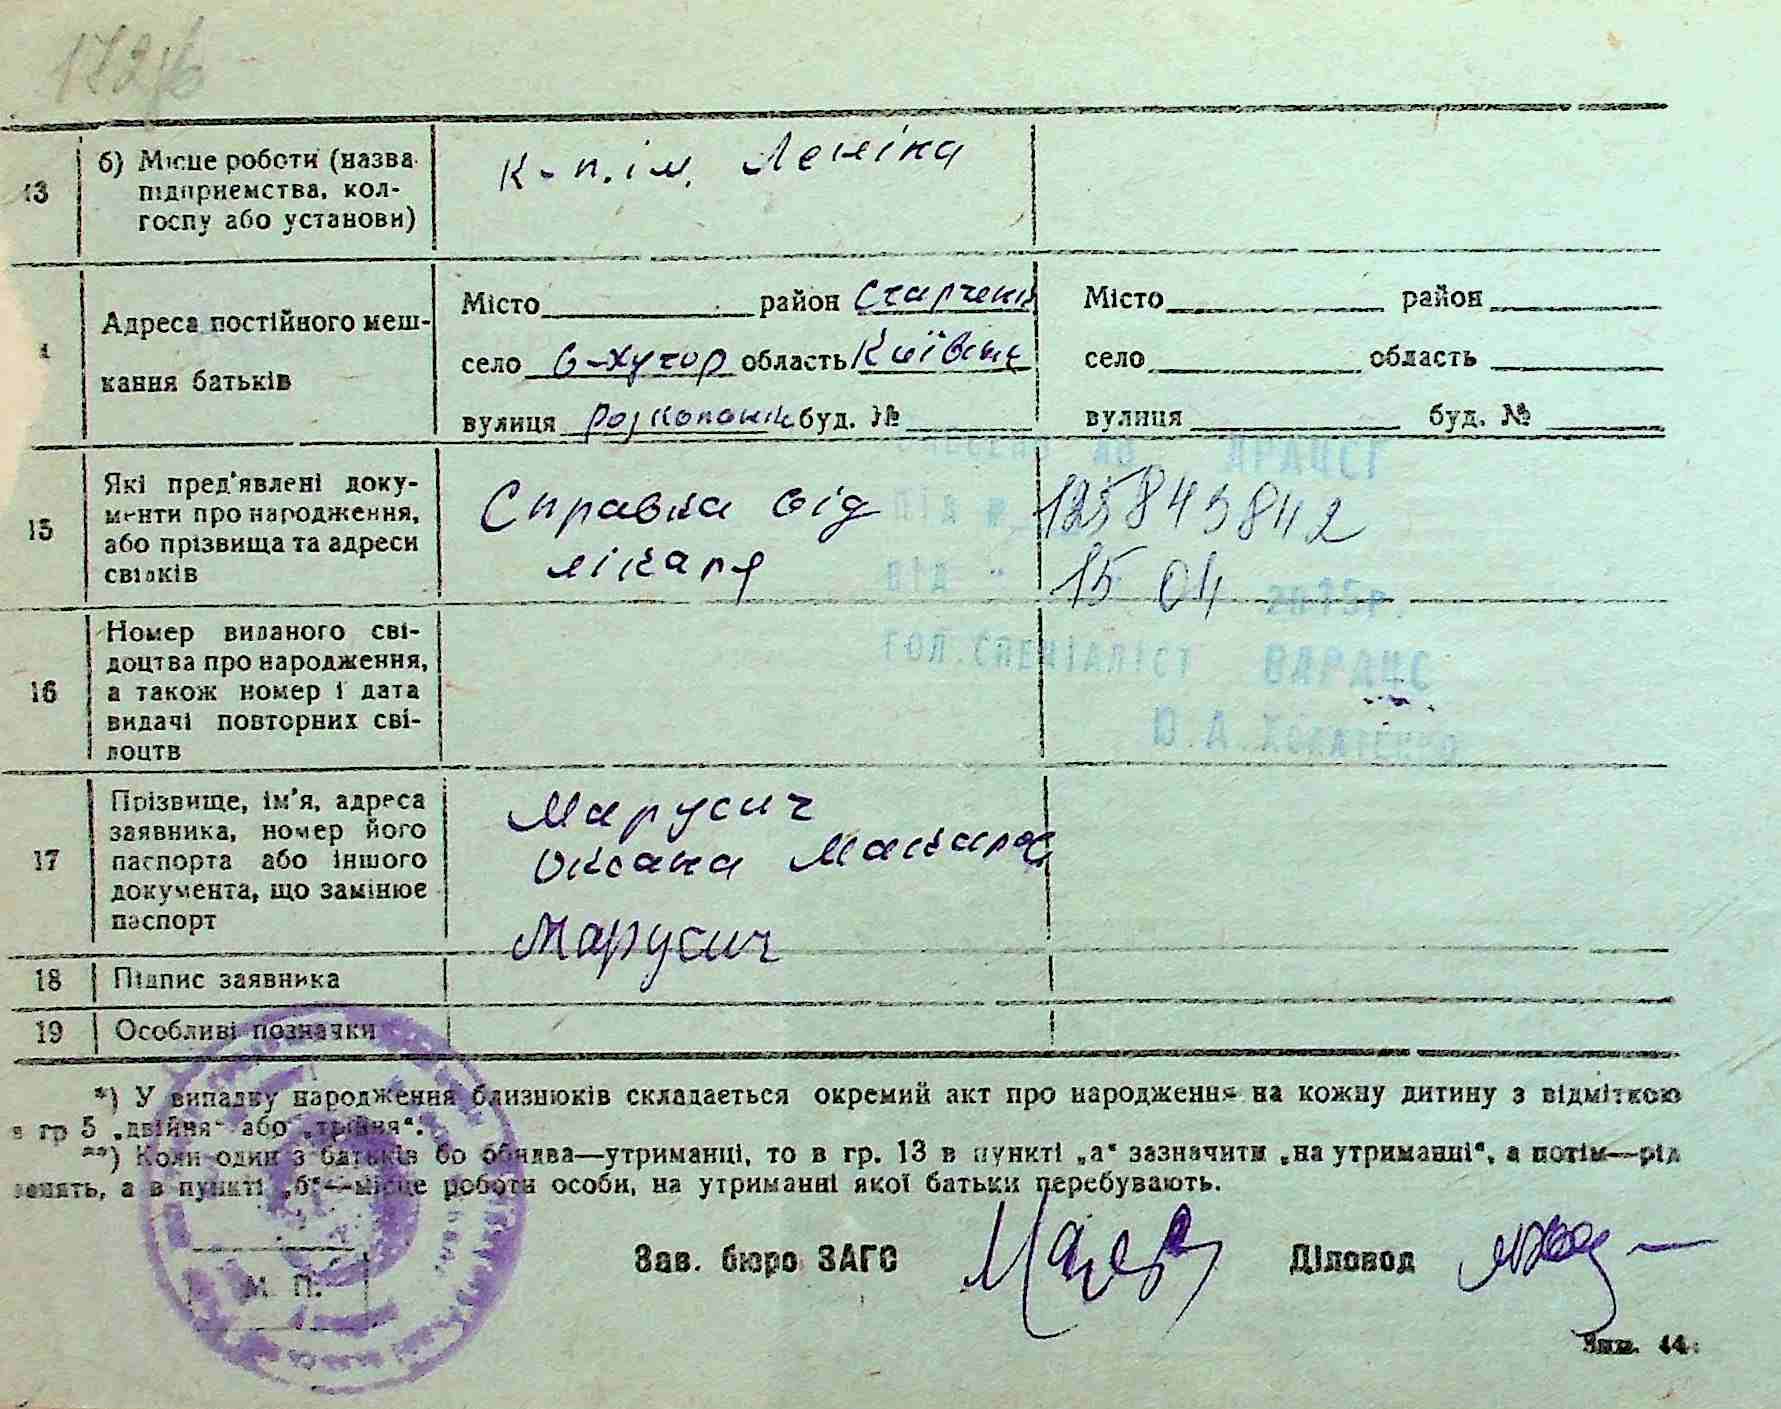 13 б) Місце роботи (назва
підприємства, кол-
госпу або установи)
к-п. ім. Леніна
Адреса постійного меш-
кання батьків
Місто район Старченк
село С-Хутор область Київськ
вулиця буд. №
Місто район
село область
вулиця буд. №
15 Які пред'явлені доку-
менти про народження,
або прізвища та адреси
свідків
Справка від
лікаря
АРАЦСГ
від 15 04
ГОЛ. СПЕЦІАЛІСТ ВДРАЦС
Ю.А.
16 Номер виданого сві-
доцтва про народження,
а також номер і дата
видачі повторних сві-
доцтв
17 Прізвище, ім'я, адреса
заявника, номер його
паспорта або іншого
документа, що замінює
паспорт
Марусич
Оксана
Марусич
18 Підпис заявника
19 Особливі позначки
*) У випадку народження близнюків складається окремий акт про народження на кожну дитину з відміткою
в гр 5 „двійня“ або „трійня“.
**) Коли один з батьків або обидва—утриманці, то в гр. 13 в пункті „а“ зазначити „на утриманні“, а потім—рід
занять, а в пункті „б“—місце роботи особи, на утриманні якої батьки перебувають.
М. П.
Зав. бюро ЗАГС
Діловод